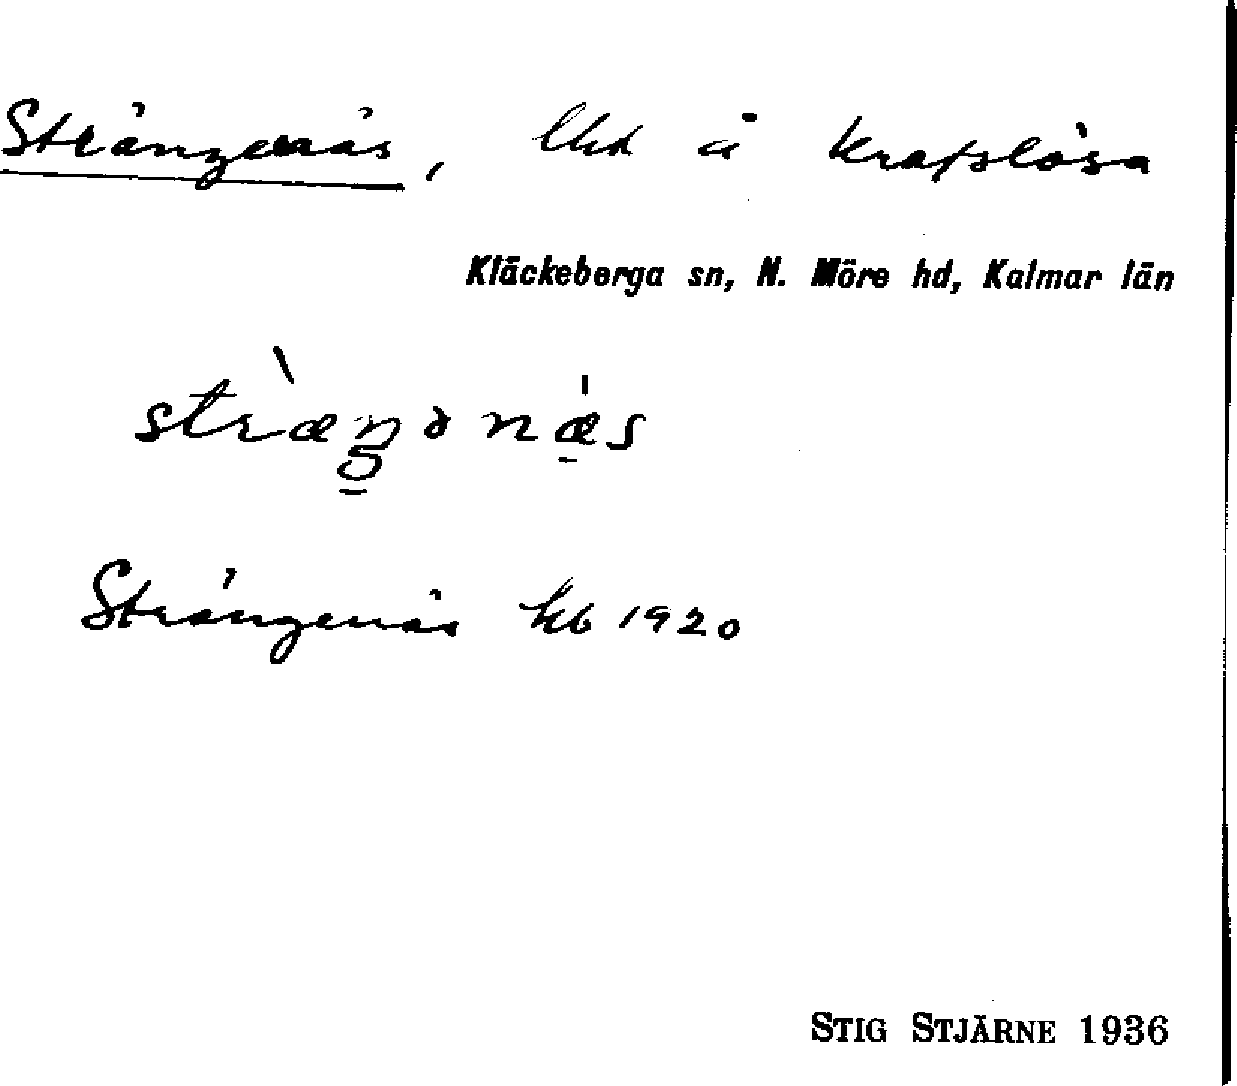 Strängenäs, lht å Krafslösa
Kläckeberga sn, N. Möre hd, Kalmar län
stræ̀ŋənæ̍s
Strängenäs kb 1920
STIG STJÄRNE 1936